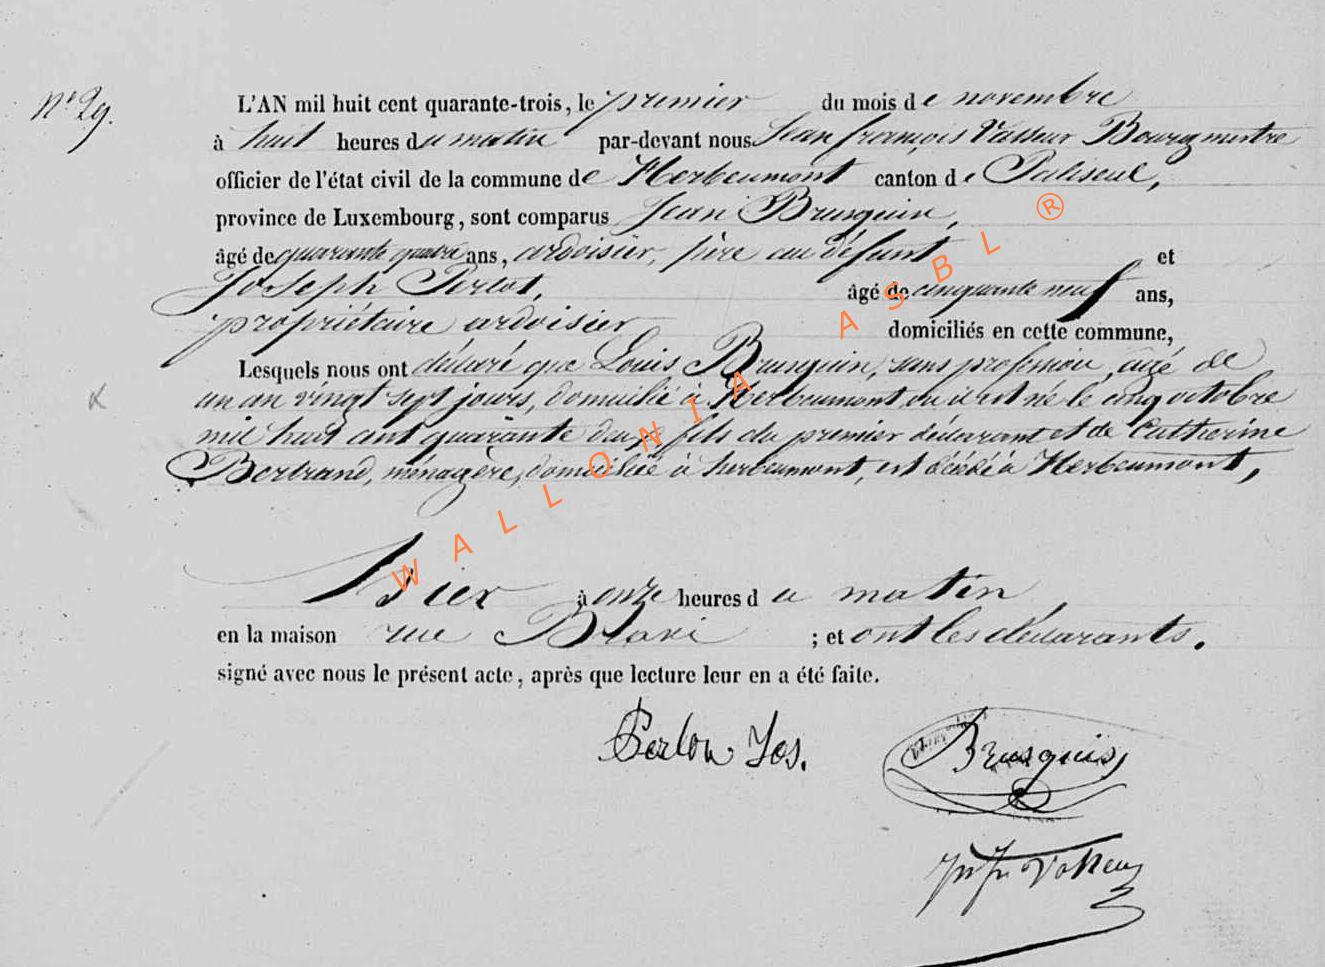 N° 29.
L'AN mil huit cent quarante-trois, le premier du mois de novembre
à huit heures du matin par-devant nous Jean françois Vasseur Bourgmestre
officier de l'état civil de la commune de Herbeumont canton de Paliseul,
province de Luxembourg, sont comparus Jean Brusquin,
âgé de quarante quatre ans, ardoisier, père au défunt et
Joseph Perlot, âgé de cinquante neuf ans,
propriétaire ardoisier domiciliés en cette commune,
Lesquels nous ont déclaré que Louis Brusquin, sans profession, agé de
un an vingt sept jours, domicilié à Herbeumont, où il est né le cinq octobre
mil huit cent quarante deux, fils du premier déclarant et de Catherine
Bertrand, ménagère, domiciliée à herbeumont, est décédé à Herbeumont,
hier à onze heures du matin
en la maison rue ; et ont les déclarants.
signé avec nous le présent acte, après que lecture leur en a été faite.
Perlot Jos. Brusquin
WALLONIA ASBL ®